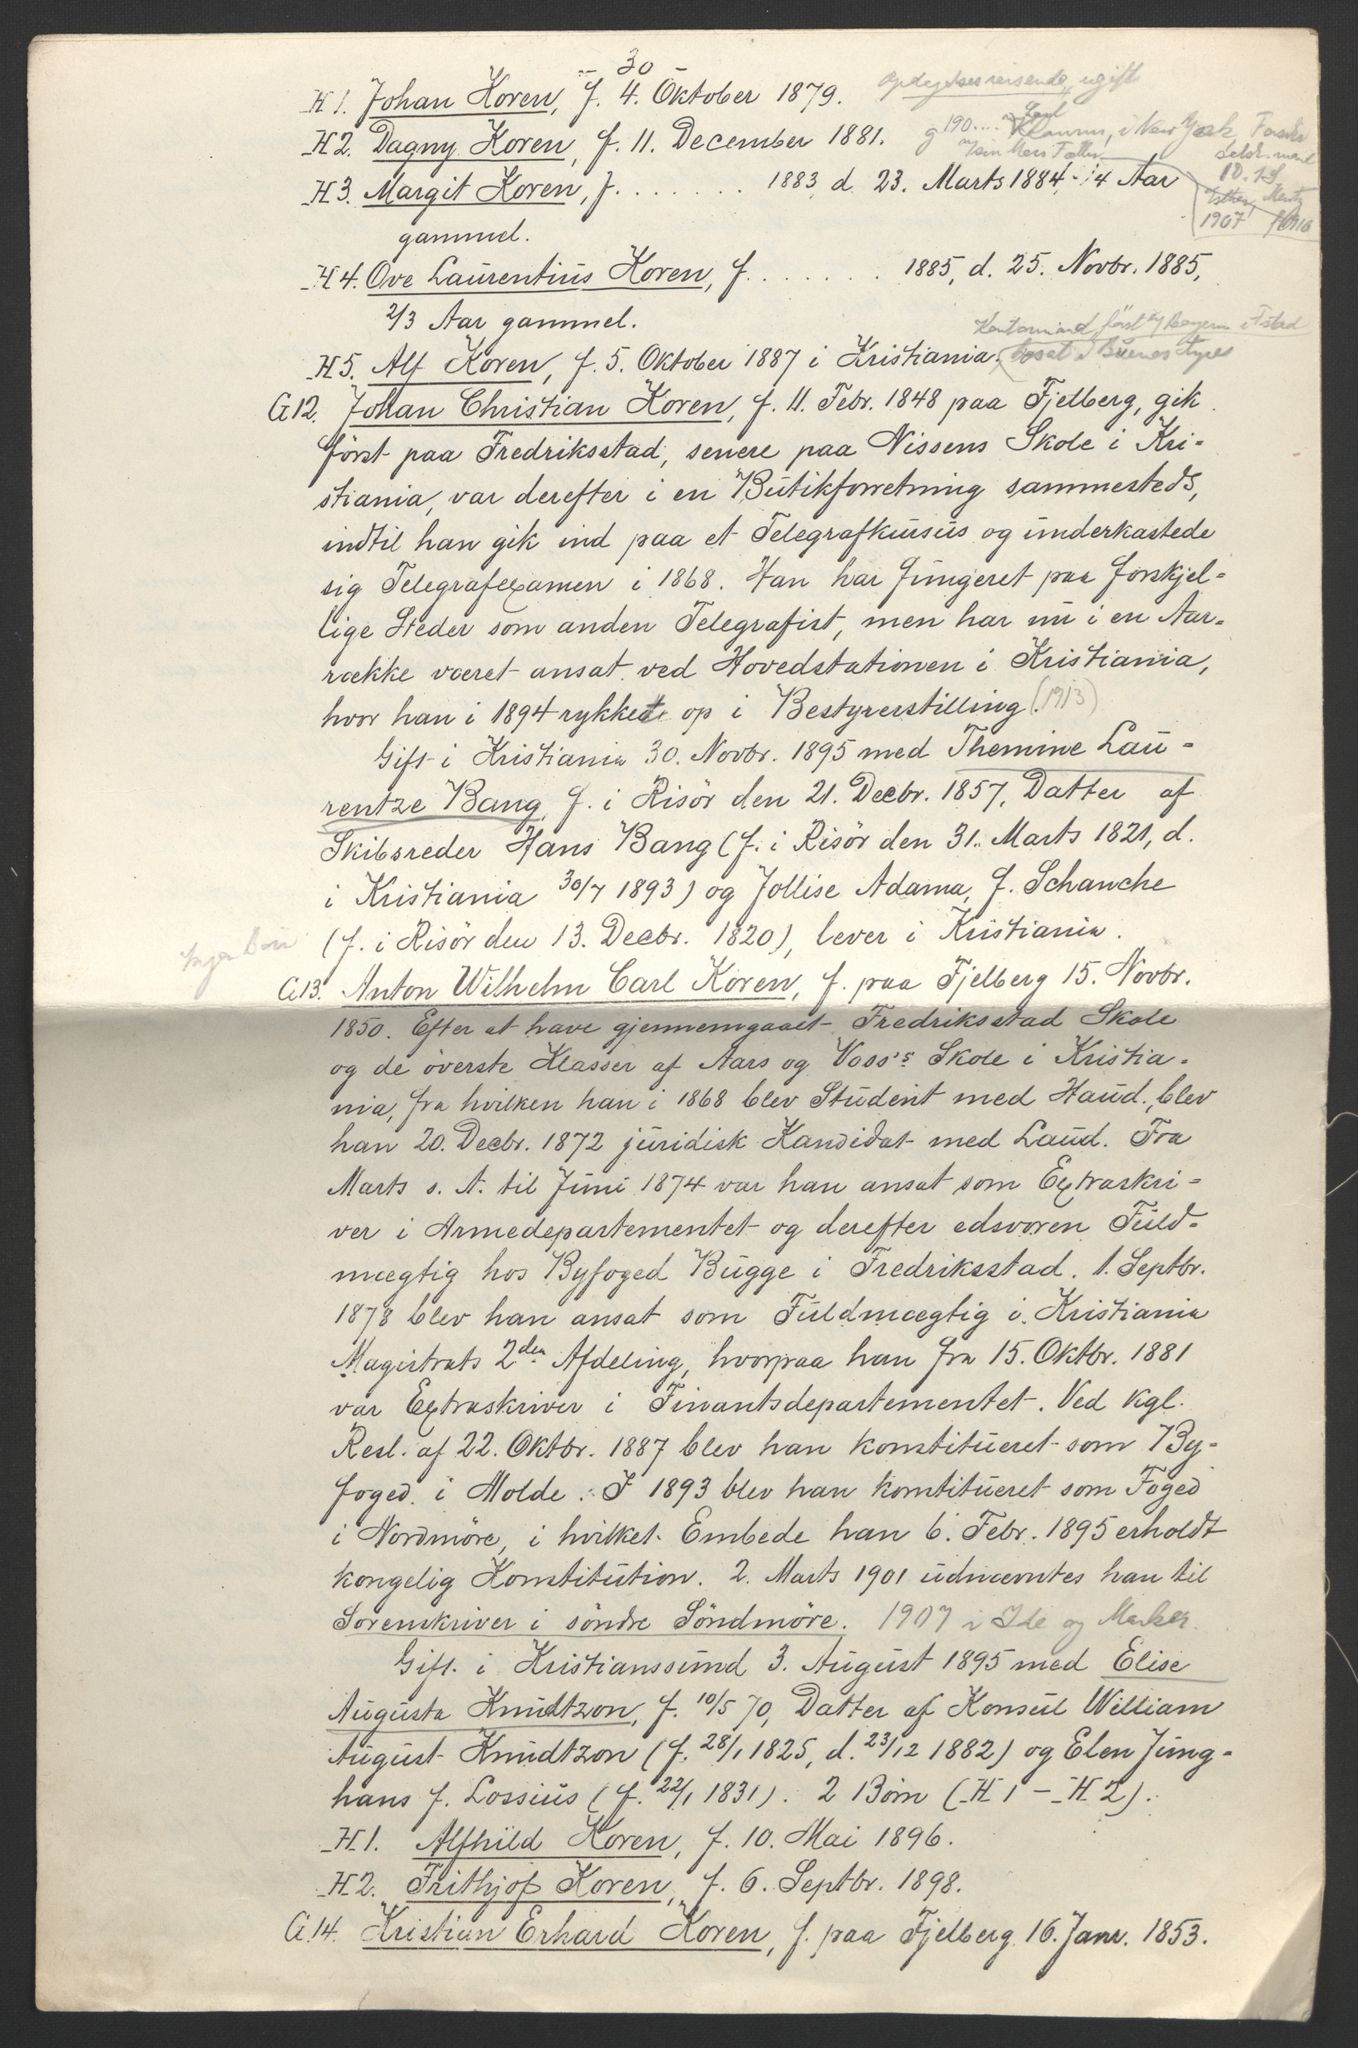 30
H 1. Johan Koren, f. 4. Oktober 1879. Opdagelsesreisende, ugift
H 2. Dagny Koren, f. 11. December 1881. g 190.... i New York,
H 3. Margit Koren, f. . . . . . . . 1883, d. 23. Marts 1884, 1/4 Aar
1907
gammel.
H 4. Ove Laurentius Koren, f. . . . . . . 1885, d. 25. Novbr. 1885,
2/3 Aar gammel.
Kontormand, först
H 5. Alf Koren, f. 5. Oktober 1887 i Kristiania. bosat i Buenos Ayres
G 12. Johan Christian Koren, f. 11. Febr. 1848 paa Fjelberg, gik
först paa Fredriksstad, senere paa Nissens Skole i Kri-
stiania, var derefter i en Butikforretning sammesteds,
indtil han gik ind paa et Telegrafkursus og underkastede
sig Telegrafexamen i 1868. Han har fungeret paa forskjel-
lige Steder som anden Telegrafist, men har nu i en Aar-
række været ansat ved Hovedstationen i Kristiania,
hvor han i 1894 rykket op i Bestyrerstilling. (1913)
Gift i Kristiania 30. Novbr. 1895 med Themine Lau-
rentze Bang, f. i Risör den 21. Decbr. 1857, Datter af
Skibsreder Hans Bang (f. i Risör den 31. Marts 1821, d.
i Kristiania 30/7 1893) og Jollise Adama, f. Schanche
(f. i Risör den 13. Decbr. 1820), lever i Kristiania.
Ingen Börn
G 13. Anton Wilhelm Carl Koren, f. paa Fjelberg 15. Novbr.
1850. Efter at have gjennemgaaet Fredriksstad Skole
og de överste Klasser af Aars og Voss's Skole i Kristia-
nia, fra hvilken han i 1868 blev Student med Haud., blev
han 20. Decbr. 1872 juridisk Kandidat med Laud. Fra
Marts s. A. til Juni 1874 var han ansat som Extraskri-
ver i Armedepartementet og derefter edsvoren Fuld-
mægtig hos Byfoged Bugge i Fredriksstad. 1. Septbr.
1878 blev han ansat som Fuldmægtig i Kristiania
Magistrats 2den Afdeling, hvorpaa han fra 15. Oktbr. 1881
var Extraskriver i Finantsdepartementet. Ved kgl.
Resl. af 22. Oktbr. 1887 blev han konstitueret som By-
foged i Molde. I 1893 blev han konstitueret som Foged
i Nordmöre, i hvilket Embede han 6. Febr. 1895 erholdt
kongelig Konstitution. 2. Marts 1901 udnævntes han til
Sorenskriver i söndre Söndmöre. 1907 i Ide og Marker.
Gift i Kristianssund 3. August 1895 med Elise
Augusta Knudtzon, f. 10/5 70, Datter af Konsul William
August Knudtzon (f. 28/1 1825, d. 23/12 1882) og Elen Jung-
hans f. Lossius (f. 22/1 1831). 2 Börn (H 1 – H 2).
H 1. Alfhild Koren, f. 10. Mai 1896.
H 2. Frithjof Koren, f. 6. Septbr. 1898.
G 14. Kristian Erhard Koren, f. paa Fjelberg 16. Janr. 1853.